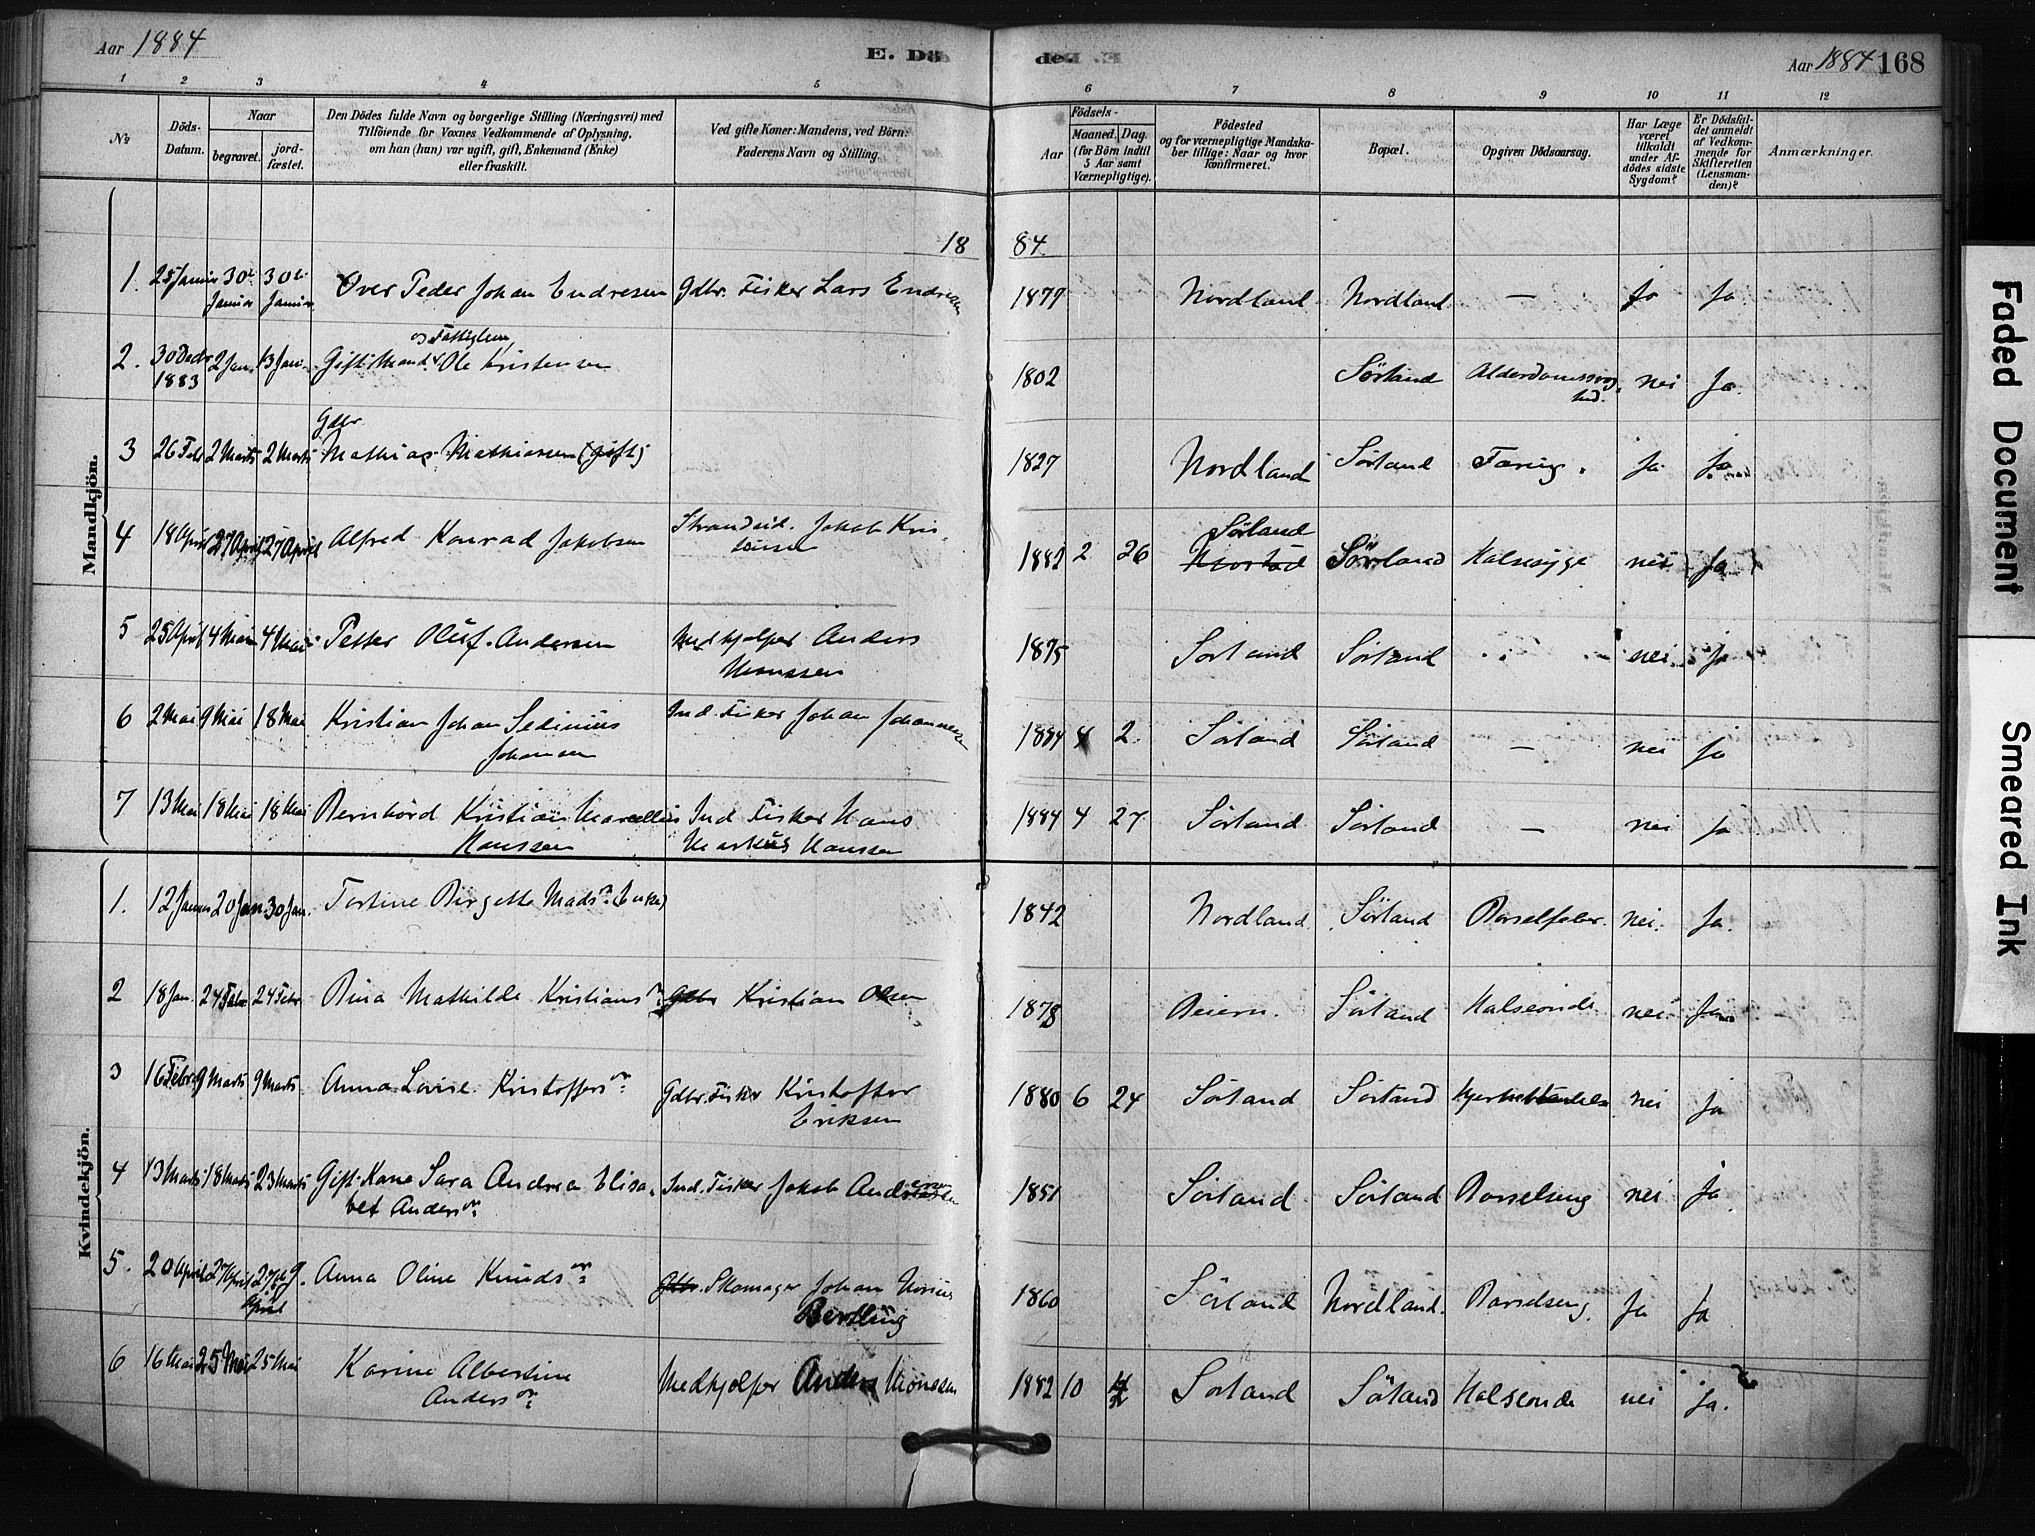 Aar 1884
E. Dö
de.
Aar 1884 168
1 2 3 4 5 6 7 8 9 10 11 12
No
Döds-Datum.
Naar
begravet.
jordfæstet.
Den Dödes fulde Navn og borgerlige Stilling (Næringsvei) med
Tilföiende for Voxnes Vedkommende af Oplysning,
om han (hun) var ugift, gift, Enkemand (Enke)
eller fraskilt.
Ved gifte Koner: Mandens, ved Börn:
Faderens Navn og Stilling.
Födsels-
Aar
Maaned. Dag.
(for Börn indtil
5 Aar samt
Værnepligtige).
Födested
og for værnepligtige Mandskaber tillige: Naar og hvor
konfirmeret.
Bopæl.
Opgiven Dödsaarsag.
Har Læge været tilkaldt under Afdödes sidste Sygdom?
Er Dödsfaldet anmeldt af Vedkommende for Skifteretten (Lensmanden)?
Anmærkninger.
18 84.
Mandkjön.
1. 25 Januar 30te Januar 30te Januar Over Peder Johan Endresen Gdbr. Fisker Lars Endresen 1877 Nordland Nordland — Ja Ja
og Fattiglem
2. 30 Decbr 1883 2 Jan. 13 Jan. Gift Mand Ole Kristensen 1802 Sörland Alderdomssvaghed. nei Ja.
Gdbr
3 26 Feb 2 Marts 2 Marts Mathias Mathiasen (gift) 1827 Nordland Sörland Tæring. ja ja
4 18 April 27 April 27 April Alfred Konrad Jakobsen Strandsid. Jakob Kristensen 1882 2 26 Sörland Sörland Halssyge nei Ja
5 25 April 4 Mai 4 Mai Petter Oluf Andersen Medhjelper Anders Monssen 1875 Sörland Sörland nei Ja
6 2 Mai 9 Mai 18 Mai Kristian Johan Sedinius Johansen Ind. Fisker Johan Johannesen 1884 4 2 Sörland Sörland — nei Ja
7 13 Mai 18 Mai 18 Mai Bernhard Kristian Marcellius Hanssen Ind Fisker Hans Markus Hanssen 1884 4 27 Sörland Sörland — nei Ja
Kvindekjön.
1. 12 Januar 20 Jan. 30 Jan. Tortine Birgette Madsdr (Enke) 1842 Nordland Sörland Barselfeber. nei. Ja.
2 18 Jan. 24 Febr 24 Febr Bina Mathilde Kristiansdr Gdbr Kristian Olsen 1878 Beiern. Sörland Halseonde nei Ja
3 16 Febr 9 Marts 9 Marts Anna Lovise Kristoffersdr Gdbr. Fisker Kristoffer Eriksen 1880 6 24 Sörland Sörland nei Ja
4 13 Marts 18 Marts 23 Marts Gift Kone Sara Andrea Elisabet Andersdr Ind. Fisker Jakob Andersen 1851 Sörland Sörland Barselseng nei Ja
5. 20 April 27 April 27 April Anna Oline Knudsdr Gdbr. Skomager Johan Bertling 1860 Sörland Nordland. Barselseng. Ja Ja
6 16 Mai 25 Mai 25 Mai Karine Albertine Andersdr Medhjelper Anders Monssen 1882 10 Sörland Sörland Halseonde nei ja.
Faded Document
Smeared Ink